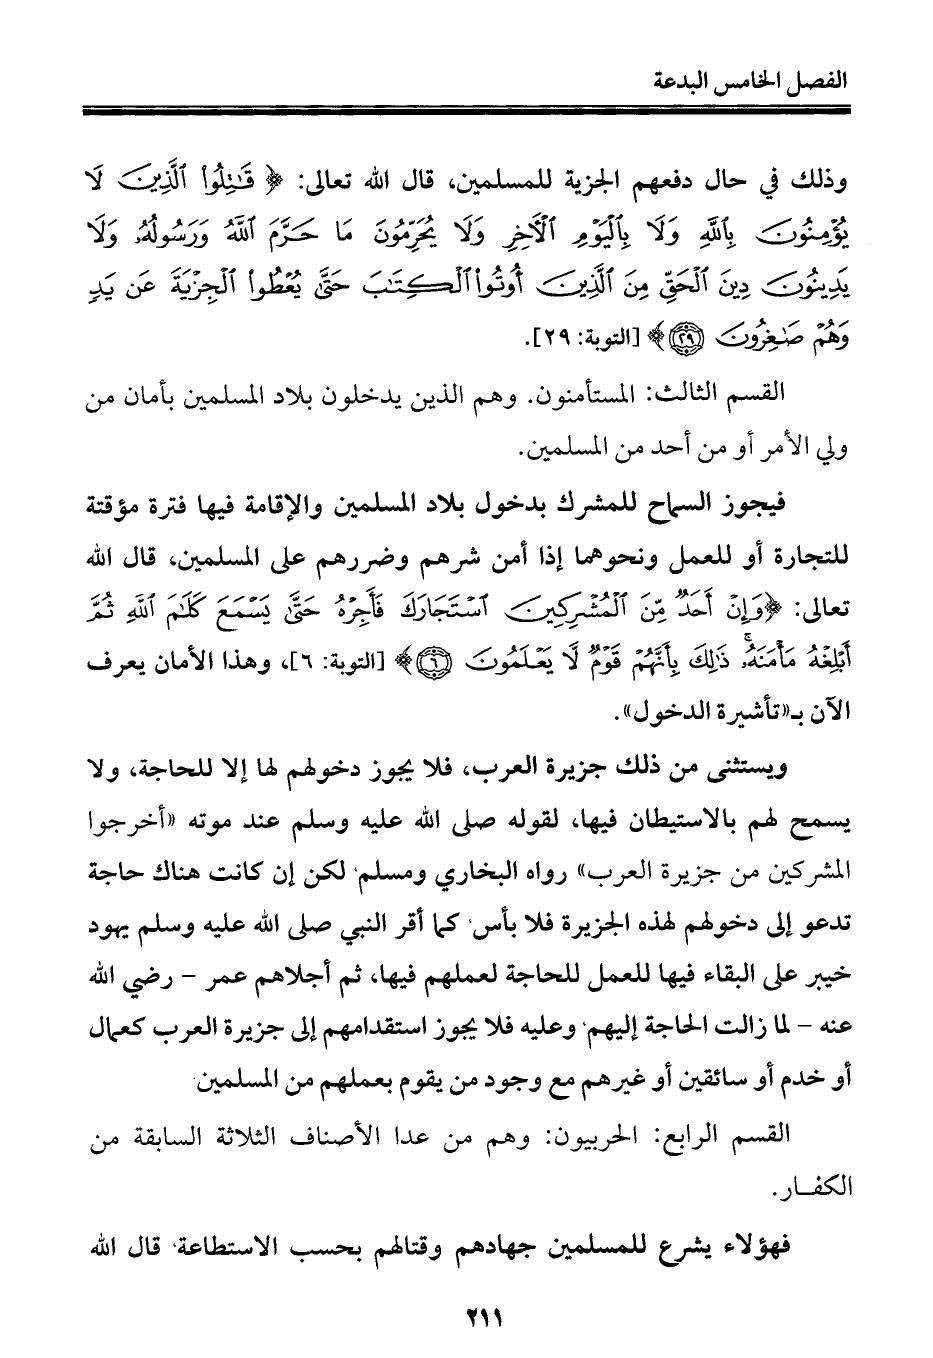 الفصل الخامس البدعة
وذلك في حال دفعهم الجزية للمسلمين، قال الله تعالى: ﴿ قَٰتِلُوا۟ ٱلَّذِينَ لَا
يُؤْمِنُونَ بِٱللَّهِ وَلَا بِٱلْيَوْمِ ٱلْـَٔاخِرِ وَلَا يُحَرِّمُونَ مَا حَرَّمَ ٱللَّهُ وَرَسُولُهُۥ وَلَا
يَدِينُونَ دِينَ ٱلْحَقِّ مِنَ ٱلَّذِينَ أُوتُوا۟ ٱلْكِتَٰبَ حَتَّىٰ يُعْطُوا۟ ٱلْجِزْيَةَ عَن يَدٍ
وَهُمْ صَٰغِرُونَ ٢٩﴾ [التوبة: ٢٩].
القسم الثالث: المستأمنون. وهم الذين يدخلون بلاد المسلمين بأمان من
ولي الأمر أو من أحد من المسلمين.
فيجوز السماح للمشرك بدخول بلاد المسلمين والإقامة فيها فترة مؤقتة
للتجارة أو للعمل ونحوهما إذا أمن شرهم وضررهم على المسلمين، قال الله
تعالى: ﴿وَإِنْ أَحَدٌ مِّنَ ٱلْمُشْرِكِينَ ٱسْتَجَارَكَ فَأَجِرْهُ حَتَّىٰ يَسْمَعَ كَلَٰمَ ٱللَّهِ ثُمَّ
أَبْلِغْهُ مَأْمَنَهُۥۚ ذَٰلِكَ بِأَنَّهُمْ قَوْمٌ لَّا يَعْلَمُونَ ٦﴾ [التوبة: ٦]، وهذا الأمان يعرف
الآن بـ«تأشيرة الدخول».
ويستثنى من ذلك جزيرة العرب، فلا يجوز دخولهم لها إلا للحاجة، ولا
يسمح لهم بالاستيطان فيها، لقوله صلى الله عليه وسلم عند موته «أخرجوا
المشركين من جزيرة العرب» رواه البخاري ومسلم. لكن إن كانت هناك حاجة
تدعو إلى دخولهم لهذه الجزيرة فلا بأس. كما أقر النبي صلى الله عليه وسلم يهود
خيبر على البقاء فيها للعمل للحاجة لعملهم فيها، ثم أجلاهم عمر – رضي الله
عنه – لما زالت الحاجة إليهم. وعليه فلا يجوز استقدامهم إلى جزيرة العرب كعمال
أو خدم أو سائقين أو غيرهم مع وجود من يقوم بعملهم من المسلمين.
القسم الرابع: الحربيون: وهم من عدا الأصناف الثلاثة السابقة من
الكفـار.
فهؤلاء يشرع للمسلمين جهادهم وقتالهم بحسب الاستطاعة. قال الله
٢١١